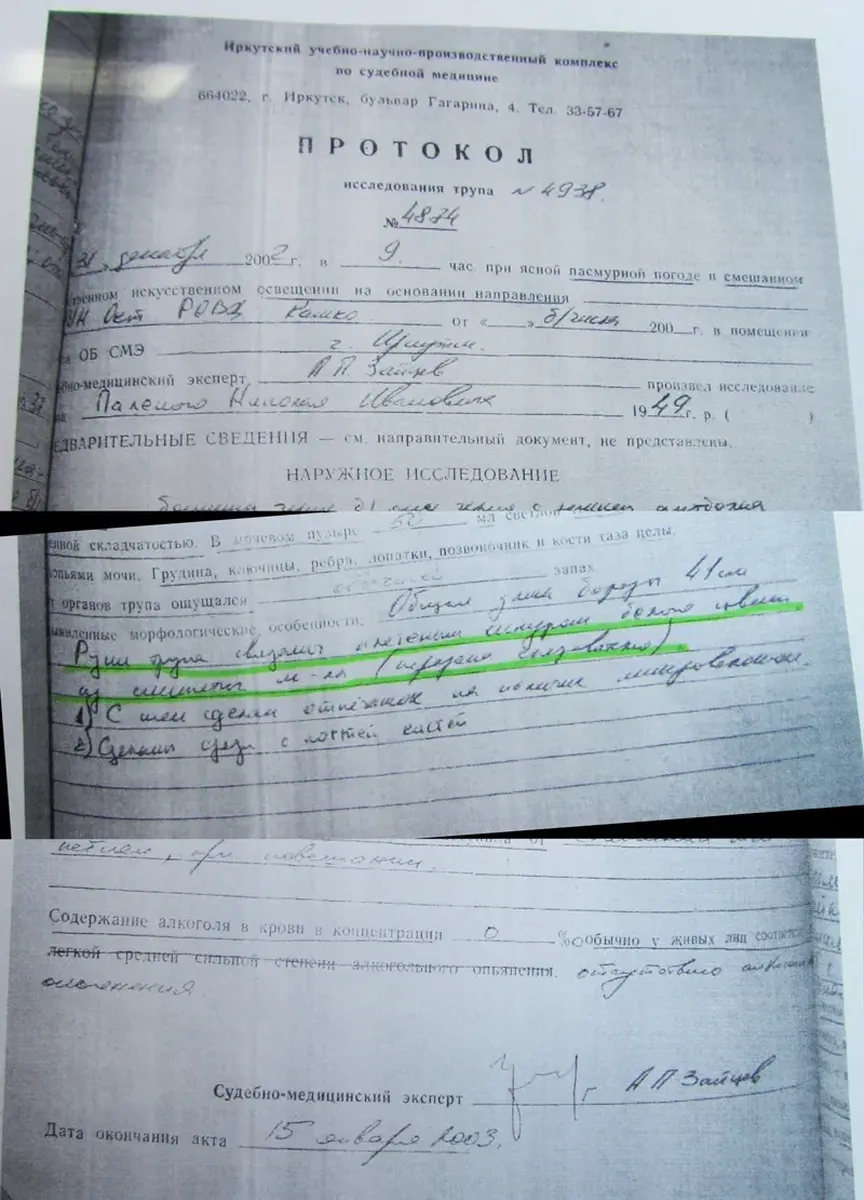 Иркутский учебно-научно-производственный комплекс
по судебной медицине
664022, г. Иркутск, бульвар Гагарина, 4. Тел. 33-57-67
ПРОТОКОЛ
исследования трупа № 4938.
№ 4874
31, декабря 2002 г. в 9 час. при ясной пасмурной погоде и смешанном
твенном искусственном освещении на основании направления
РОВД от « » б/числа 200 г. в помещении
ОБ СМЭ г. Иркутск.
бно-медицинский эксперт А П Зайцев произвел исследование
Ивановича 1949 г. р. ( )
ЕДВАРИТЕЛЬНЫЕ СВЕДЕНИЯ — см. направительный документ, не представлены.
НАРУЖНОЕ ИССЛЕДОВАНИЕ
енной складчатостью. В мочевом пузыре мл
опьями мочи. Грудина, ключицы, ребра, лопатки, позвоночник и кости таза целы.
т органов трупа ощущался обычный запах
ыявленные морфологические особенности. Общая длина бороды 41 см
Руки трупа связаны плетеным шнуром белого цвета
из синтетич м-ла (передана следователю)
1) С шеи сделан отпечаток на наличие микроволокон.
2) Сделаны срезы с ногтей кистей
петлей, при повешении.
Содержание алкоголя в крови в концентрации 0 %о обычно у живых лиц соответс
легкой средней сильной степени алкогольного опьянения. отсутствию
опьянения
Судебно-медицинский эксперт А П Зайцев
Дата окончания акта 15 января 2003.